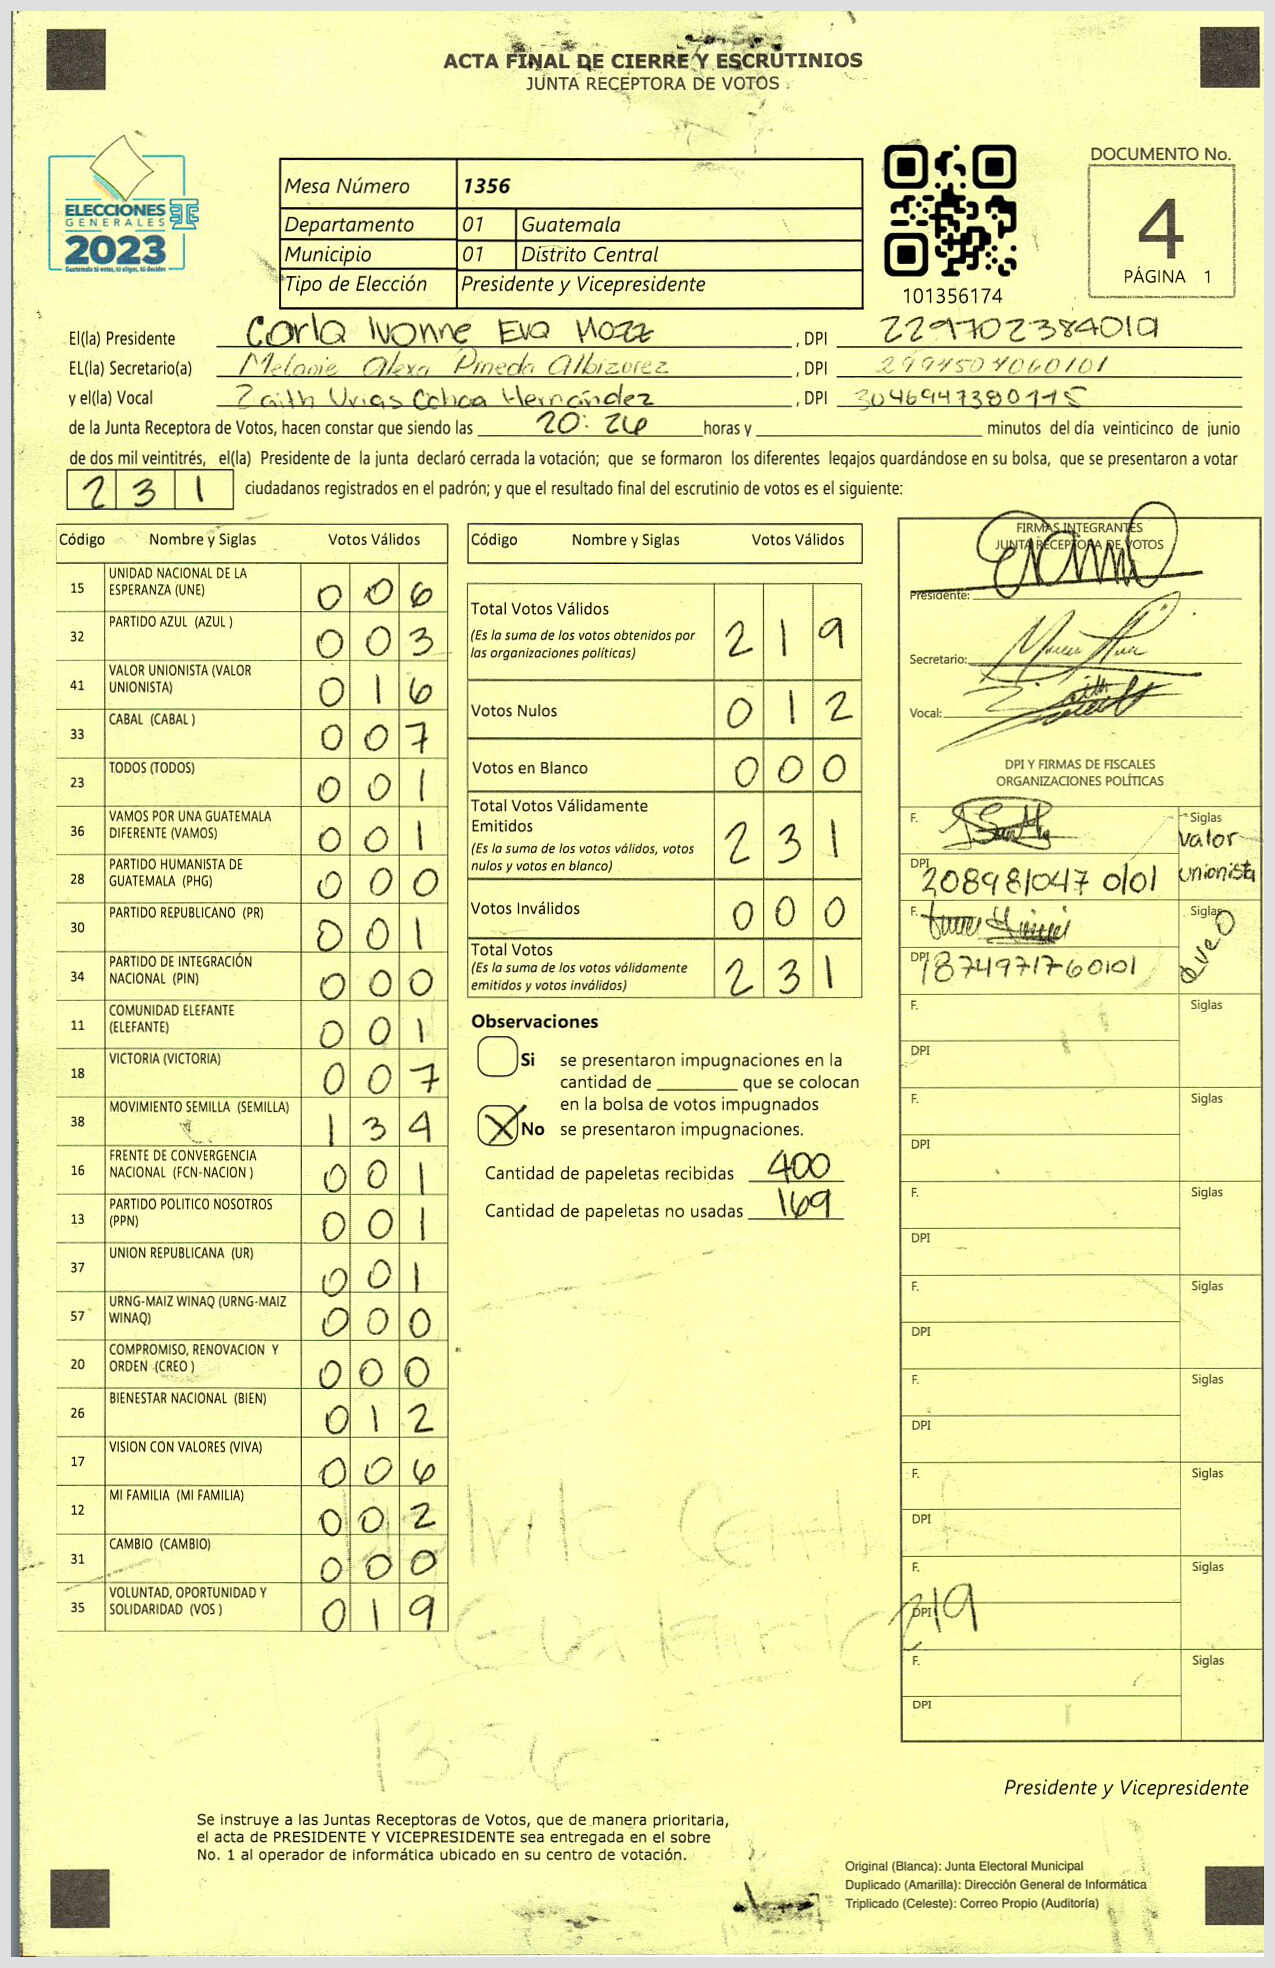 ACTA FINAL DE CIERRE Y ESCRUTINIOS
JUNTA RECEPTORA DE VOTOS
ELECCIONES
GENERALES
2023
Guatemala tú votas, tú eliges, tú decides
Mesa Número 1356
Departamento 01 Guatemala
Municipio 01 Distrito Central
Tipo de Elección Presidente y Vicepresidente
101356174
DOCUMENTO No.
4
PÁGINA 1
El(la) Presidente Carla Ivonne Eva Mozz, DPI 2297702384019
EL(la) Secretario(a) Melanie Alexa Pineda Albizurez, DPI
y el(la) Vocal Zaith Urias Ochoa Hernández, DPI
de la Junta Receptora de Votos, hacen constar que siendo las 20:26 horas y ____ minutos del día veinticinco de junio
de dos mil veintitrés, el(la) Presidente de la junta declaró cerrada la votación; que se formaron los diferentes legajos guardándose en su bolsa, que se presentaron a votar
231 ciudadanos registrados en el padrón; y que el resultado final del escrutinio de votos es el siguiente:
Código Nombre y Siglas Votos Válidos
15 UNIDAD NACIONAL DE LA ESPERANZA (UNE) 006
32 PARTIDO AZUL (AZUL ) 003
41 VALOR UNIONISTA (VALOR UNIONISTA) 016
33 CABAL (CABAL ) 007
23 TODOS (TODOS) 001
36 VAMOS POR UNA GUATEMALA DIFERENTE (VAMOS) 001
28 PARTIDO HUMANISTA DE GUATEMALA (PHG) 000
30 PARTIDO REPUBLICANO (PR) 001
34 PARTIDO DE INTEGRACIÓN NACIONAL (PIN) 000
11 COMUNIDAD ELEFANTE (ELEFANTE) 001
18 VICTORIA (VICTORIA) 007
38 MOVIMIENTO SEMILLA (SEMILLA) 134
16 FRENTE DE CONVERGENCIA NACIONAL (FCN-NACION ) 001
13 PARTIDO POLITICO NOSOTROS (PPN) 001
37 UNION REPUBLICANA (UR) 001
57 URNG-MAIZ WINAQ (URNG-MAIZ WINAQ) 000
20 COMPROMISO, RENOVACION Y ORDEN (CREO ) 000
26 BIENESTAR NACIONAL (BIEN) 012
17 VISION CON VALORES (VIVA) 006
12 MI FAMILIA (MI FAMILIA) 002
31 CAMBIO (CAMBIO) 000
35 VOLUNTAD, OPORTUNIDAD Y SOLIDARIDAD (VOS ) 019
Código Nombre y Siglas Votos Válidos
Total Votos Válidos 219
(Es la suma de los votos obtenidos por
las organizaciones políticas)
Votos Nulos 012
Votos en Blanco 000
Total Votos Válidamente
Emitidos 231
(Es la suma de los votos válidos, votos
nulos y votos en blanco)
Votos Inválidos 000
Total Votos 231
(Es la suma de los votos válidamente
emitidos y votos inválidos)
Observaciones
Si se presentaron impugnaciones en la
cantidad de ________ que se colocan
en la bolsa de votos impugnados
X No se presentaron impugnaciones.
Cantidad de papeletas recibidas 400
Cantidad de papeletas no usadas 169
FIRMAS INTEGRANTES
JUNTA RECEPTORA DE VOTOS
Presidente:
Secretario:
Vocal:
DPI Y FIRMAS DE FISCALES
ORGANIZACIONES POLÍTICAS
F. Siglas valor
DPI 208981047 0101 unionista
F. Siglas
DPI 1874971760101
F. Siglas
DPI
F. Siglas
DPI
F. Siglas
DPI
F. Siglas
DPI
F. Siglas
DPI
F. Siglas
DPI
F. Siglas
DPI 219
F. Siglas
DPI
1356
Presidente y Vicepresidente
Se instruye a las Juntas Receptoras de Votos, que de manera prioritaria,
el acta de PRESIDENTE Y VICEPRESIDENTE sea entregada en el sobre
No. 1 al operador de informática ubicado en su centro de votación.
Original (Blanca): Junta Electoral Municipal
Duplicado (Amarilla): Dirección General de Informática
Triplicado (Celeste): Correo Propio (Auditoría)